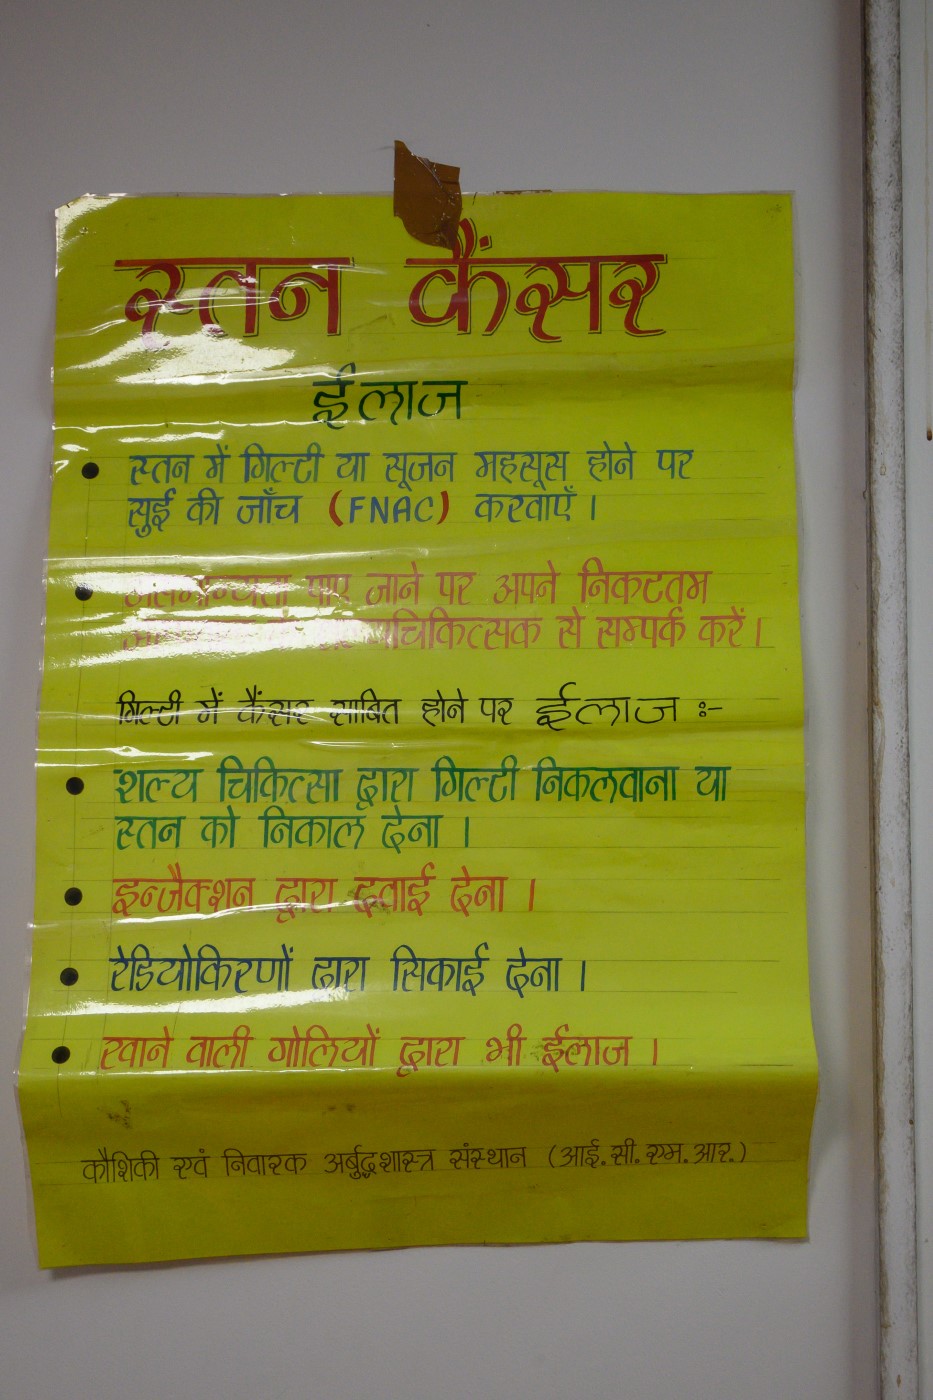 स्तन कैंसर
ईलाज
स्तन में गिल्टी या सूजन महसूस होने पर
सुई की जाँच (FNAC) करवाएँ।
असमान्यता पाए जाने पर अपने निकटतम
से सम्पर्क करें।
गिल्टी में कैंसर साबित होने पर ईलाज :-
शल्य चिकित्सा द्वारा गिल्टी निकलवाना या
स्तन को निकाल देना।
इन्जैक्शन द्वारा दवाई देना।
रेडियोकिरणों द्वारा सिकाई देना।
खाने वाली गोलियों द्वारा भी ईलाज।
कौशिकी एवं निवारक अर्बुदशास्त्र संस्थान (आई.सी.एम.आर.)